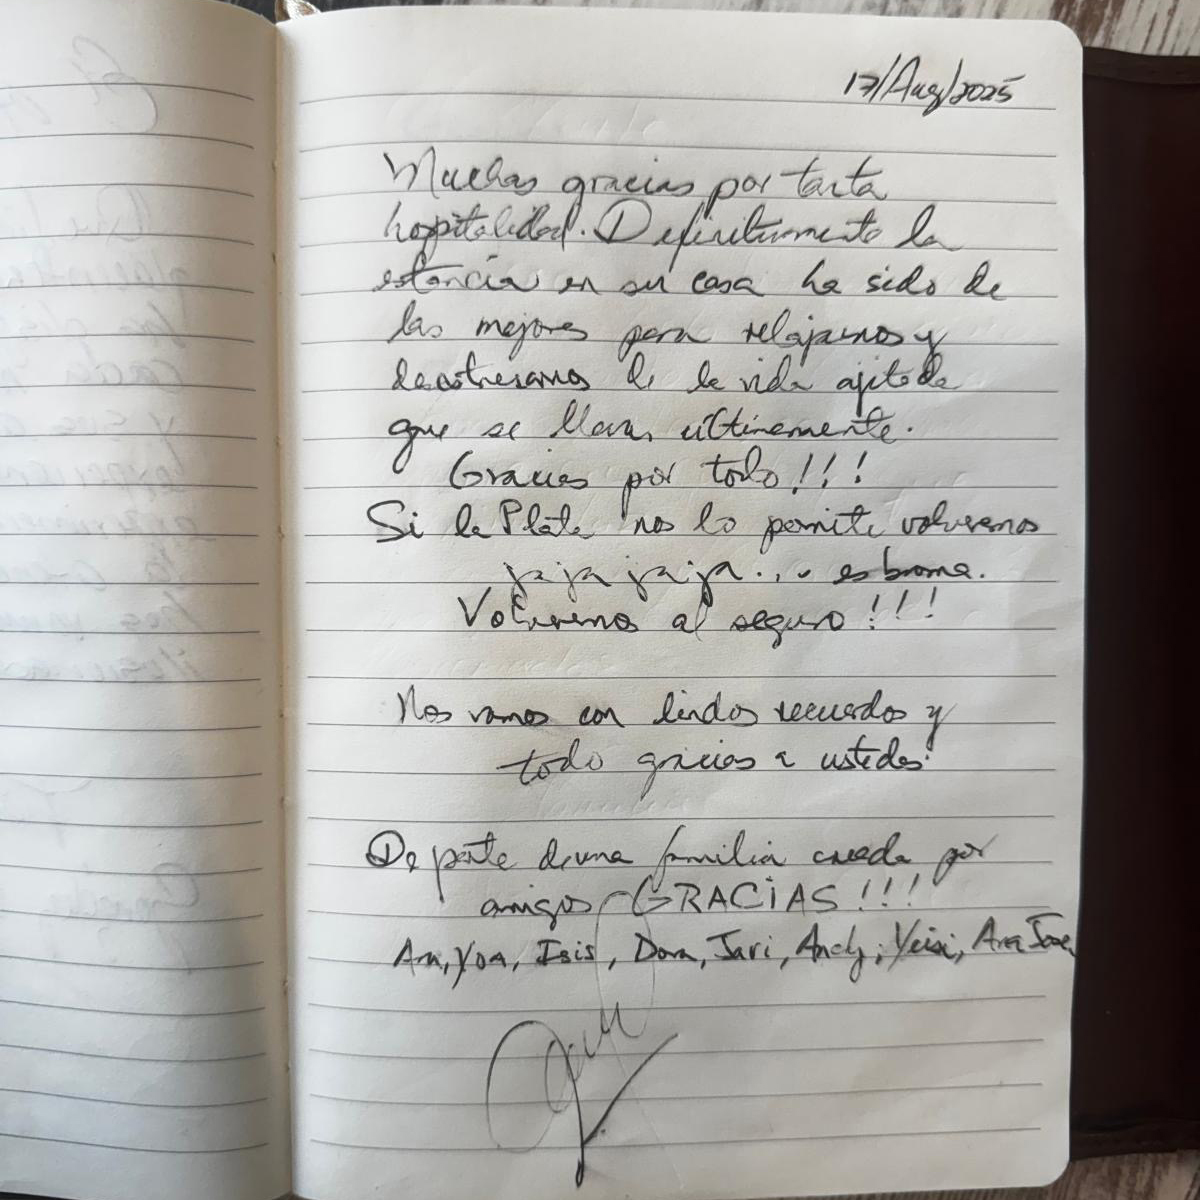 17/Aug/2025
Muchas gracias por tanta
hospitalidad. Definitivamente la
estancia en su casa ha sido de
las mejores para relajarnos y
desestresarnos de la vida agitada
que se lleva ultimamente.
Gracias por todo!!!
Si la Plata nos lo permite volveremos
jajajaja... es broma.
Volveremos al seguro!!!
Nos vamos con lindos recuerdos y
todo gracias a ustedes.
De parte de una familia creada por
amigos GRACIAS!!!
Ana, Yoa, Isis, Dora, Javi, Andy, Yeisi, Ana Jose